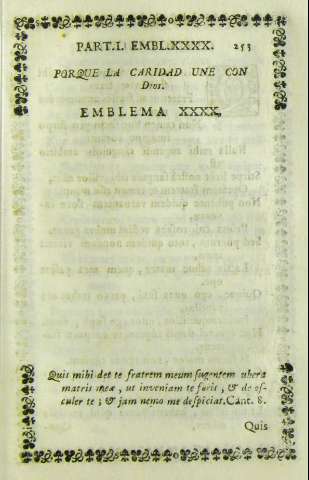 PART.I. EMBL.XXXX. 253
PORQUE LA CARIDAD UNE CON
DIOS.
EMBLEMA XXXX.
Quis mihi det te fratrem meum sugentem ubera
matris meæ, ut inveniam te foris, & de os-
culer te; & jam nemo me despiciat. Cant. 8.
Quis